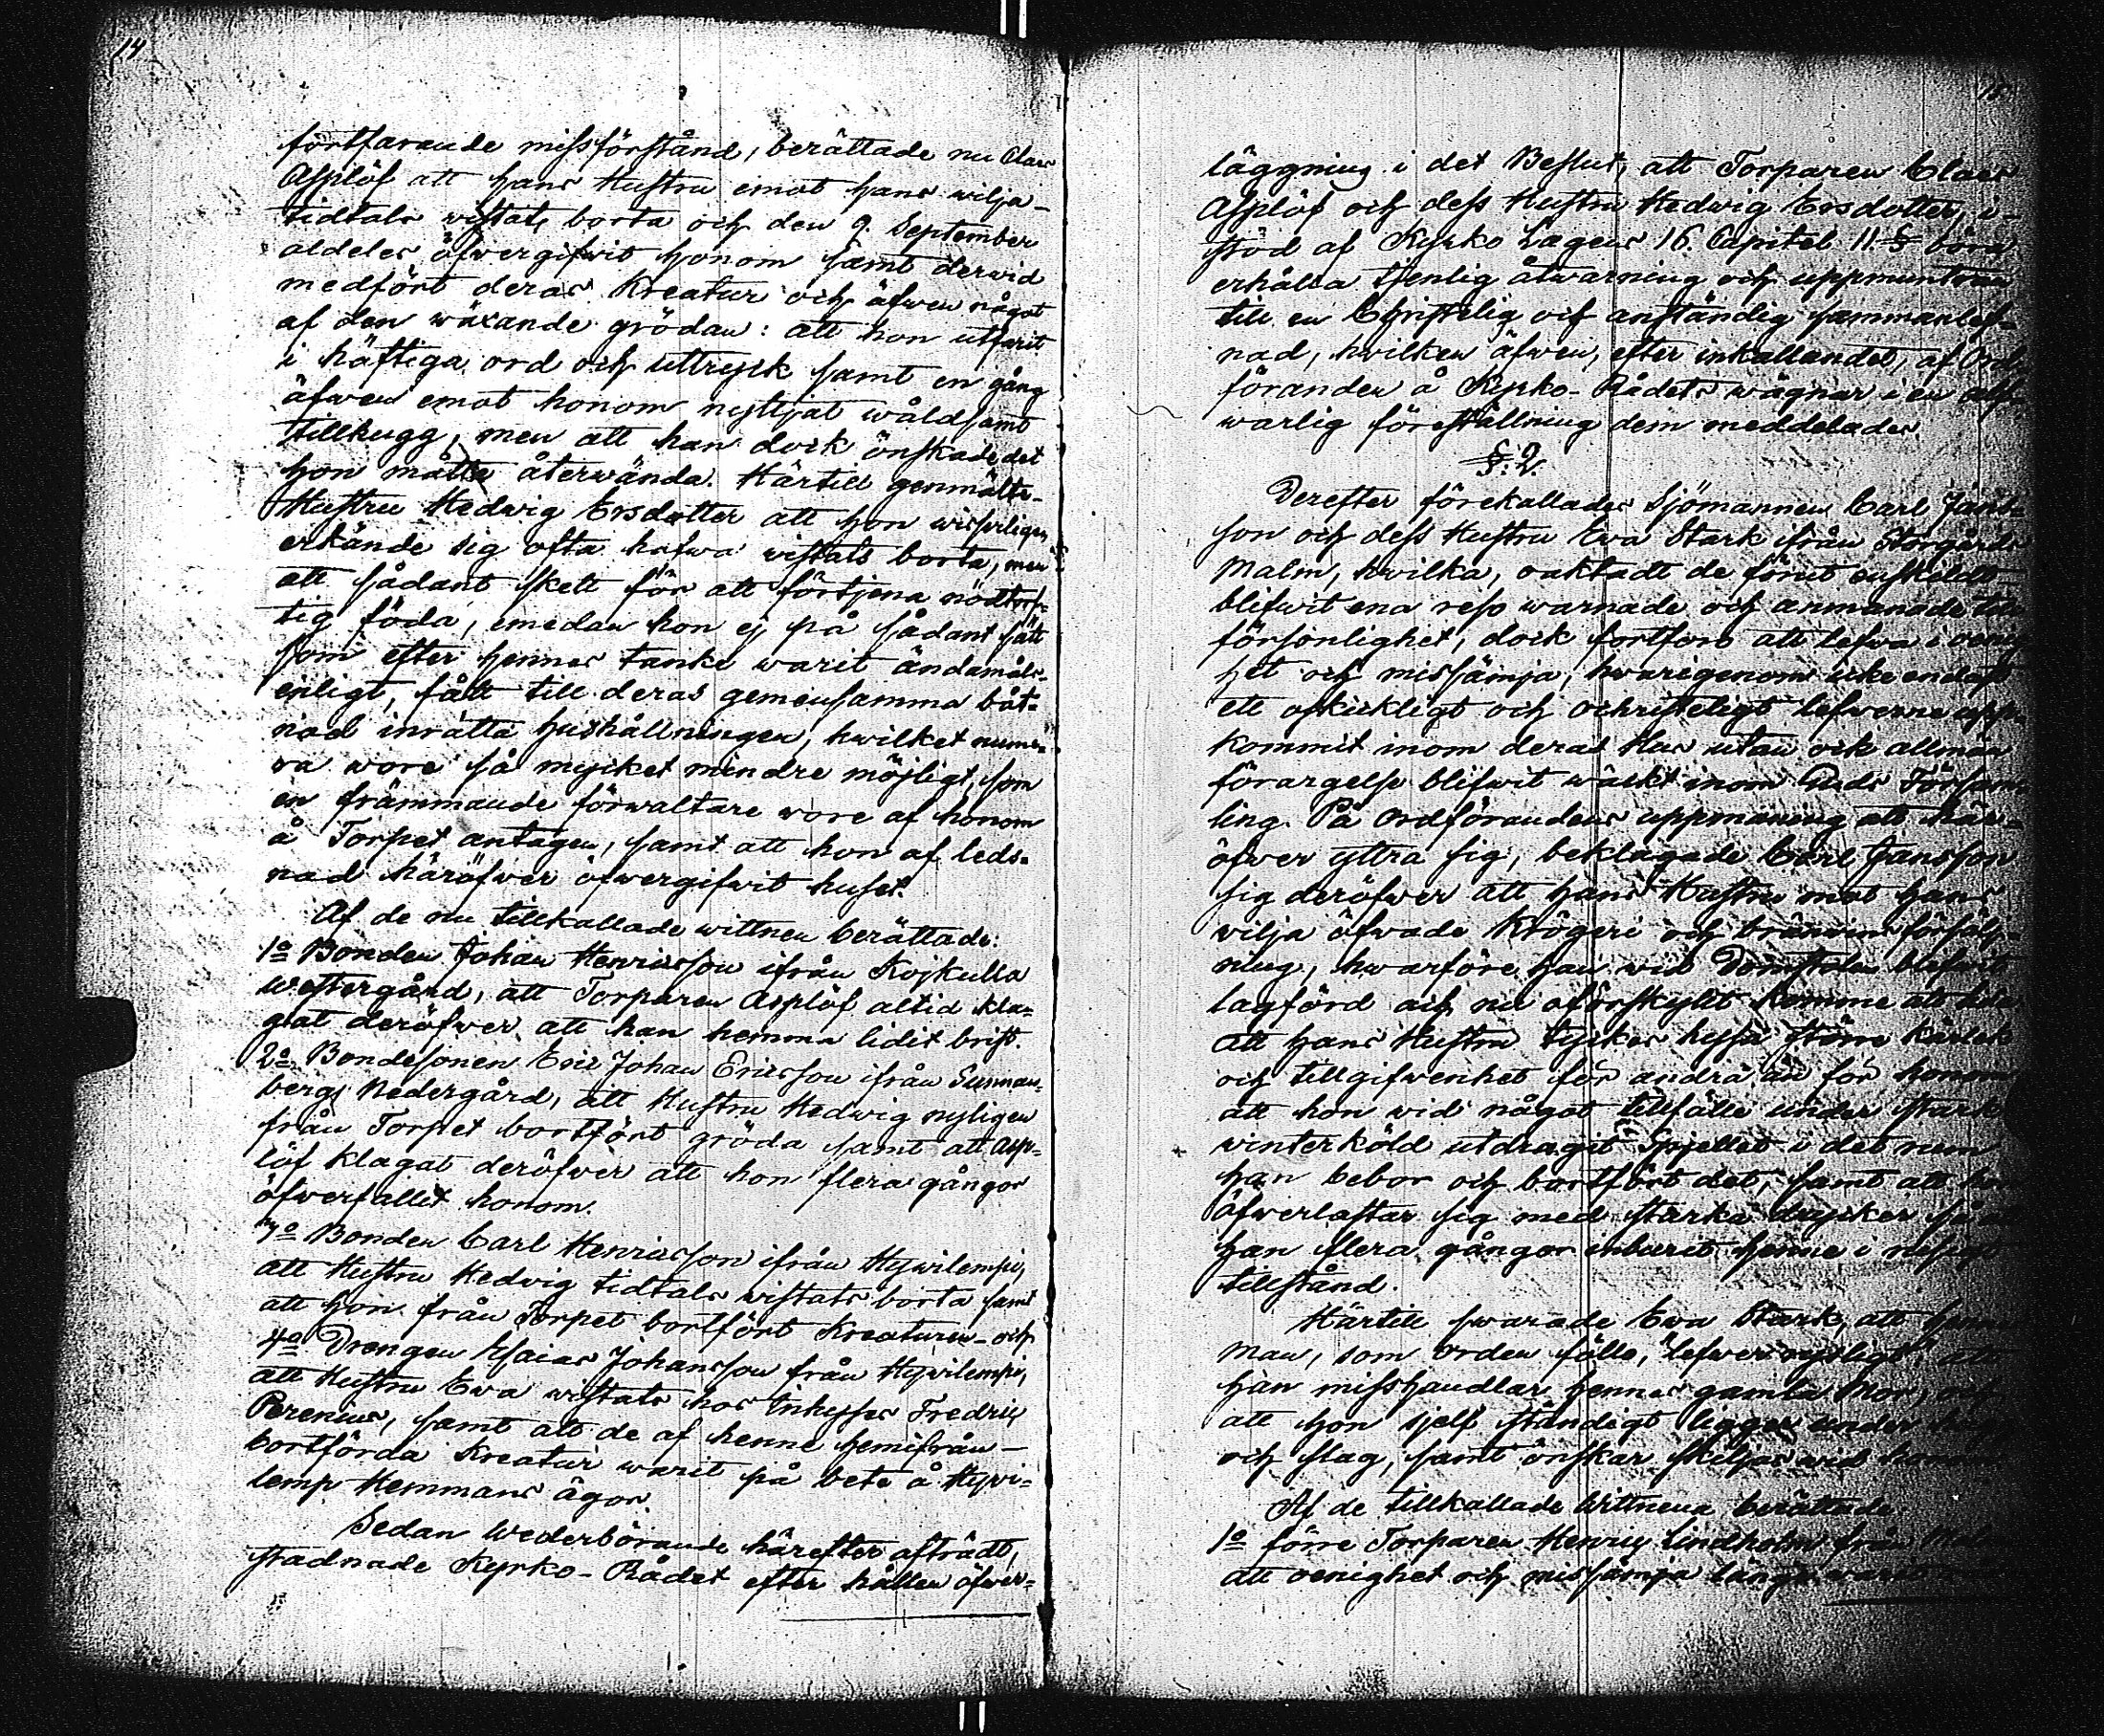 14
fortfarande missförstånd, berättade nu Claes
Asplöf att hans Hustru emot hans wilja
tidtals wistats borta och den 9. September
aldeles öfwergifwit honom samt derwid
medfört deras Kreatur och äfwen något
af den wäxande grödan: att hon utfarit
i häftiga ord och uttryck samt en gång
äfwen emot honom nyttjat wåldsamt
tillhugg, men att han dock önskade det
hon måtte återwända. Härtill genmälte
Hustru Hedwig Ersdotter att hon wisserligen
erkände sig ofta hafwa wistats borta, men
att sådant skett för att förtjena nödtorf-
tig föda, emedan hon ej på sådant sätt
som efter hennes tanke warit ändamåls-
enligt, fått till deras gemensamma båt-
nad inrätta hushållningen, hwilket nume-
ra wore så mycket mindre möjligt, som
en främmande förwaltare wore af honom
å Torpet antagen, samt att hon af leds-
nad häröfwer öfwergifwit huset.
Af de nu tillkallade wittnen berättade:
1o Bonden Johan Henricsson ifrån Kojkulla
Westergård, att Torparen Asplöf altid kla-
gat deröfwer att han hemma lidit brist.
2o Bondesonen Eric Johan Ericsson ifrån Sunnan-
bergs Nedergård, att Hustru Hedwig nyligen
från Torpet bortfört gröda samt att Asp-
löf klagat deröfwer att hon flera gångor
öfwerfallit honom.
3o Bonden Carl Henricsson ifrån Hywilempi,
att Hustru Hedvig tidtals wistats borta samt
att hon från Torpet bortfört Kreaturen - och
4o Drengen Esaias Johansson från Hywilempi,
att Hustru Ewa wistats hos Inhyses Fredric
Perenius, samt att de af henne hemifrån
bortförda Kreatur warit på bete å Hywi-
lemp Hemmans ägor.
Sedan Wederbörande härefter afträdt,
stadnade Kyrko-Rådet efter hållen öfwer-
15
läggning i det Beslut, att Torparen Claes
Asplöf och dess Hustru Hedwig Ersdotter, i
stöd af Kyrko Lagens 16. Capitel 11. § böra
erhålla tjenlig åtwarning och uppmuntran
till en Christelig och anständig sammanlef-
nad, hvilken äfwen, efter inkallandet, af Ord-
föranden å Kyrko-Rådets wägnar i en alf-
warlig föreställning dem meddelades.
§. 2.
Derefter förekallades Sjömannen Carl Jans-
son och dess Hustru Ewa Stark ifrån Storgårds
Malm, hwilka, oaktadt de förut enskildt
blifwit ena reso warnade och anmanade till
försonlighet, dock fortfore att lefwa i oenig
het och missämja, hwarigenom icke endast
ett oskickligt och ochristeligt lefwerne upp-
kommit inom deras Hus utan ock allmän
förargelse blifwit wäckt inom Församl-
ling. På Ordförandens uppmaning att här-
öfwer yttra sig, beklagade Carl Jansson
sig deröfwer att hans Hustru mot hans
wilja öfwade Krögeri och bränvins försälj-
ning, hwarföre han wid Domstolen blifwit
lagförd och nu oförskylt komme att lida
att hans Hustru tyckes hysa större kärlek
och tillgifwenhet för andra än för honom
att hon wid något tillfälle under stark
winterköld utdragit Spjellet i det rum
han bebor och bortfört det, samt att hon
öfwerlastar sig med starka drycker så att
han flera gångor inburit henne i
tillstånd.
Härtill swarade Ewa Stark, att hennes
Man, som orden fölle, "lefwer rysligt" att
han misshandlar hennes gamla Mor, och
att hon sjelf ständigt ligger under hugg
och slag, samt önskar skiljas wid honom.
Af de tillkallade Wittnena berättade
1o förre Torparen Henric Lindholm från Malm
att oenighet och missämja länge warit